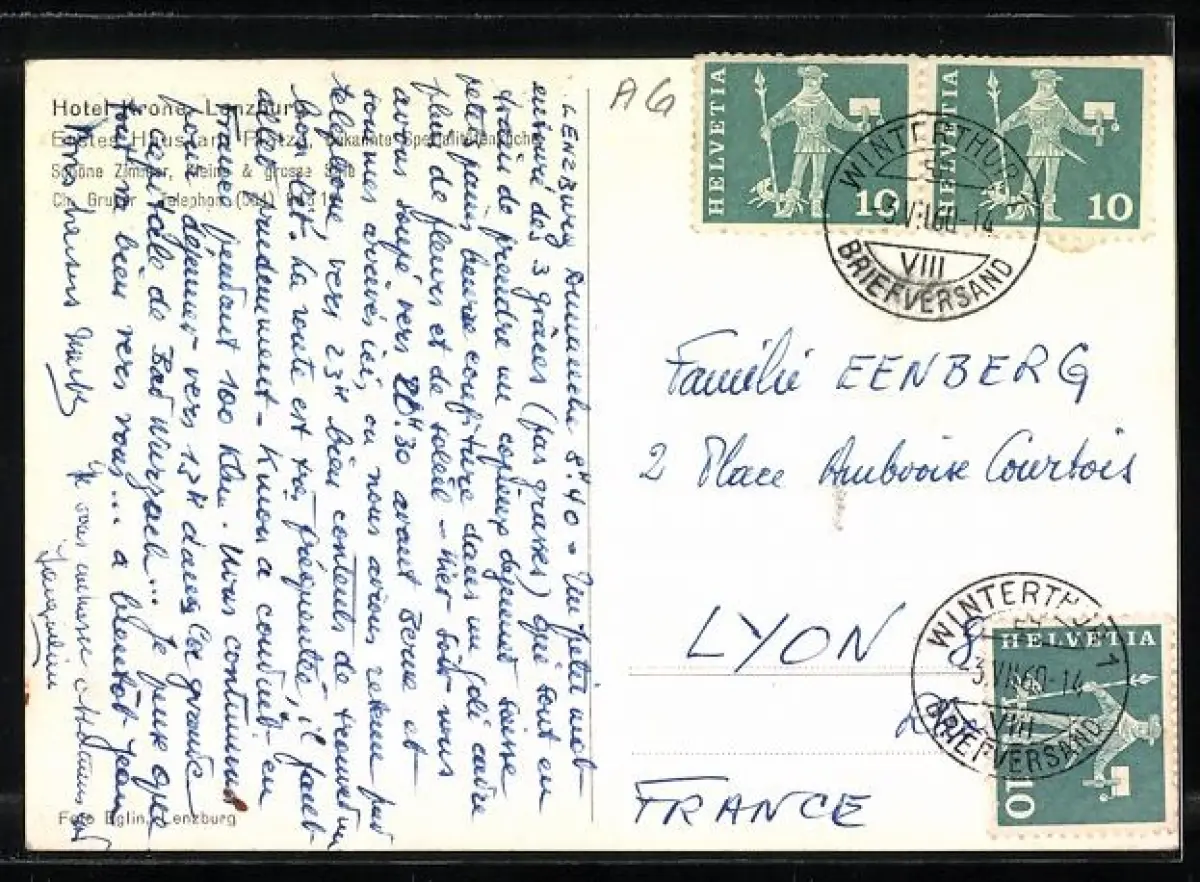 Hotel Krone, Lenzburg
Erstes Haus am Platze, bekannte Spezialitätenküche
Schöne Zimmer, kleine & grosse Säle
Telephon (064)
LENZBURG Dimanche 8H40 - Un petit mot
entouré des 3 grâces (pas grasses) qui sont en
train de prendre un copieux déjeuner suisse
petit pain beurre confiture dans un joli cadre
plein de fleurs et de soleil - Hier soir nous
avons soupé vers 20H.30 avant Berne et
sommes arrivés ici, où nous avions retenu par
telephone, vers 23H bien contents de trouver un
bon lit. La route est très fréquentée, il faut
pendant 100 Klm. Nous continuons
prudemment - Knon a conduit en
pour déjeuner vers 12H dans la grande
de Bad Wurzach... Je pense que
bien vers vous... a bientôt
Bons baisers
Je vous embrasse
Jacqueline
Foto Eglin, Lenzburg
AG
HELVETIA
10
HELVETIA
10
WINTERTHUR 1
VIII
BRIEFVERSAND
Familie EENBERG
2 Place Ambroise Courtois
LYON 8
FRANCE
WINTERTHUR 1
3.VII.60-14
VIII
BRIEFVERSAND
HELVETIA
10